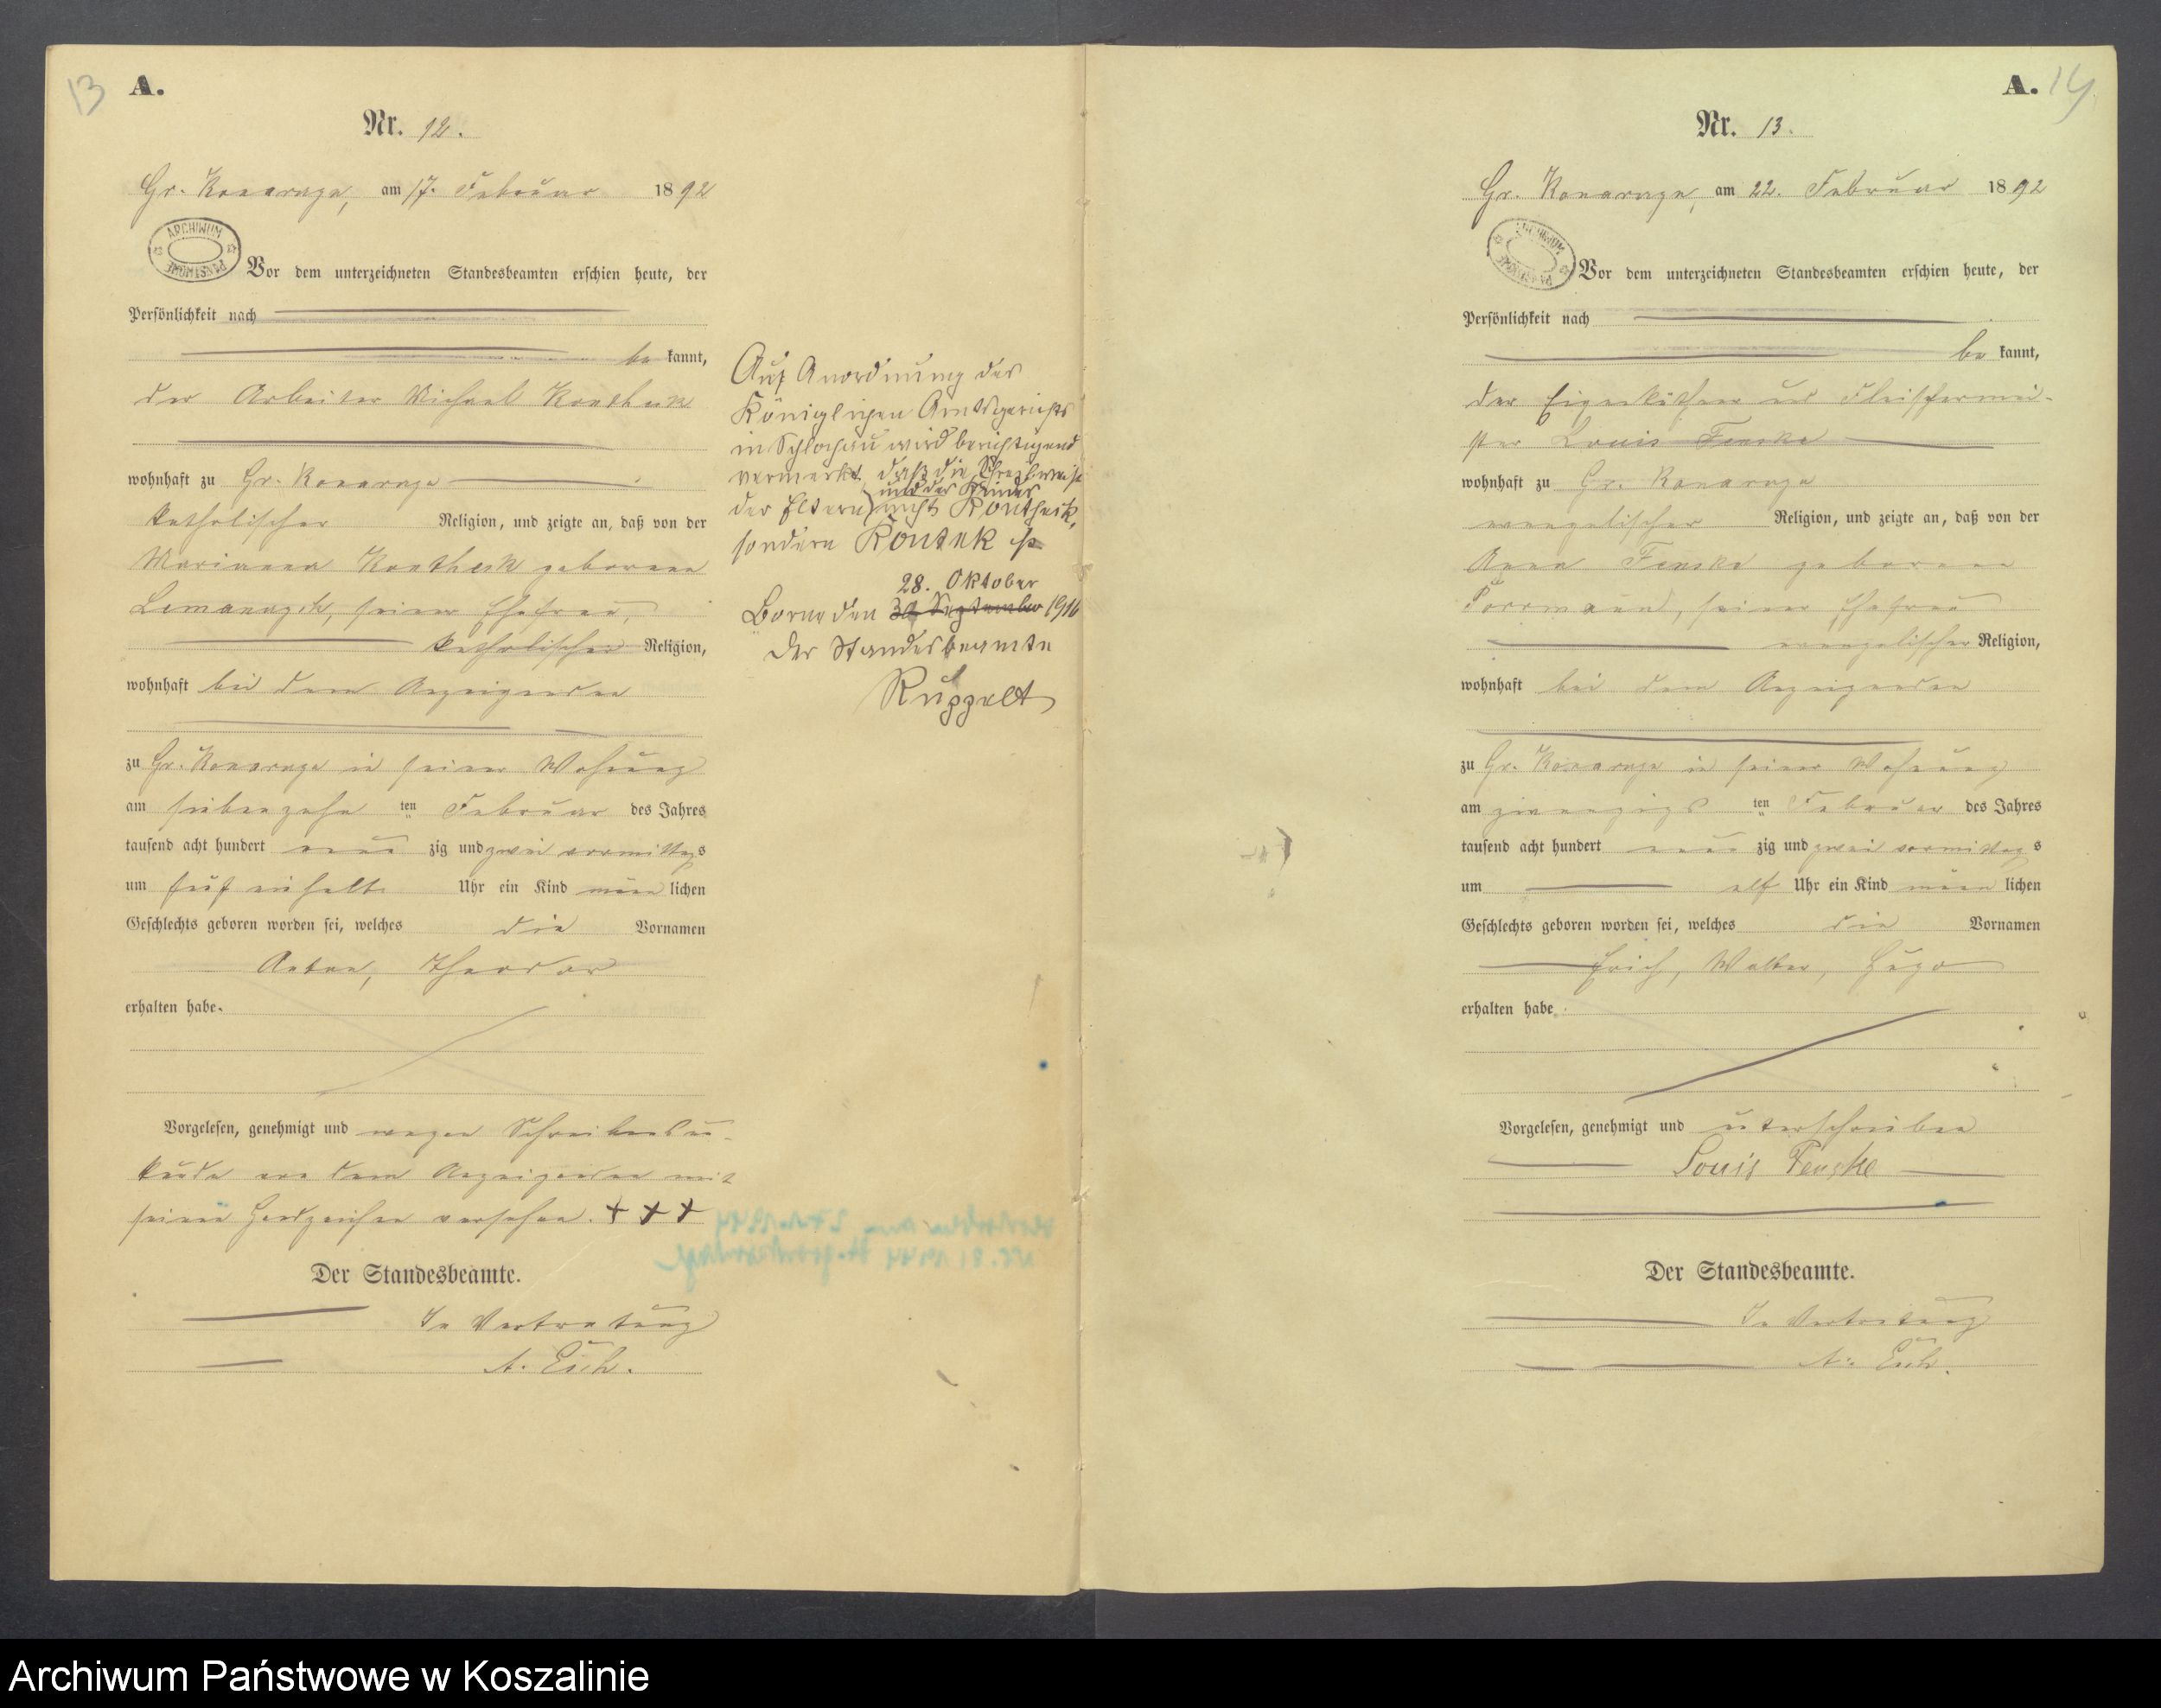 13
A.
Nr. 12.
Gr. Konarzyn, am 17. Februar 1892
ARCHIWUM PAŃSTWOWE
Vor dem unterzeichneten Standesbeamten erschien heute, der
Persönlichkeit nach
be kannt,
der Arbeiter Michael Konthek
wohnhaft zu Gr. Konarzyn
katholischer Religion, und zeigte an, daß von der
Marianna Konthek geborene
seiner Ehefrau,
katholischer Religion,
wohnhaft bei dem Anzeigenden
zu Gr. Konarzyn in seiner Wohnung
am siebenzehn ten Februar des Jahres
tausend acht hundert neun zig und zwei vormittags
um fünf einhalb Uhr ein Kind männ lichen
Geschlechts geboren worden sei, welches die Vornamen
Anton, Theodor
erhalten habe.
Vorgelesen, genehmigt und wegen Schreibensun-
kunde von dem Anzeigenden mit
seinen Handzeichen versehen. + + +
Der Standesbeamte.
In Vertretung
A. Esch.
Auf Anordnung des
Königlichen Amtsgerichts
in Schlochau wird berichtigend
vermerkt, daß die Schreibweise
und des Kindes
der Eltern nicht Konthek,
sondern Kontek ist.
28. Oktober
Borne den September 1916
Der Standesbeamte
Ruppelt
A. 14
Nr. 13.
Gr. Konarzyn, am 22. Februar 1892
ARCHIWUM PAŃSTWOWE
Vor dem unterzeichneten Standesbeamten erschien heute, der
Persönlichkeit nach
be kannt,
der Eigenkäthner und Fleischermei-
ster Louis Fenske
wohnhaft zu Gr. Konarzyn
evangelischer Religion, und zeigte an, daß von der
Anna Fenske geborene
Porrmann, seiner Ehefrau
evangelischer Religion,
wohnhaft bei dem Anzeigenden
zu Gr. Konarzyn in seiner Wohnung
am zwanzigs ten Februar des Jahres
tausend acht hundert neun zig und zwei vormittags
um elf Uhr ein Kind männ lichen
Geschlechts geboren worden sei, welches die Vornamen
Erich, Walter, Hugo
erhalten habe.
Vorgelesen, genehmigt und unterschrieben
Louis Fenske
Der Standesbeamte.
In Vertretung
A. Esch.
Archiwum Państwowe w Koszalinie